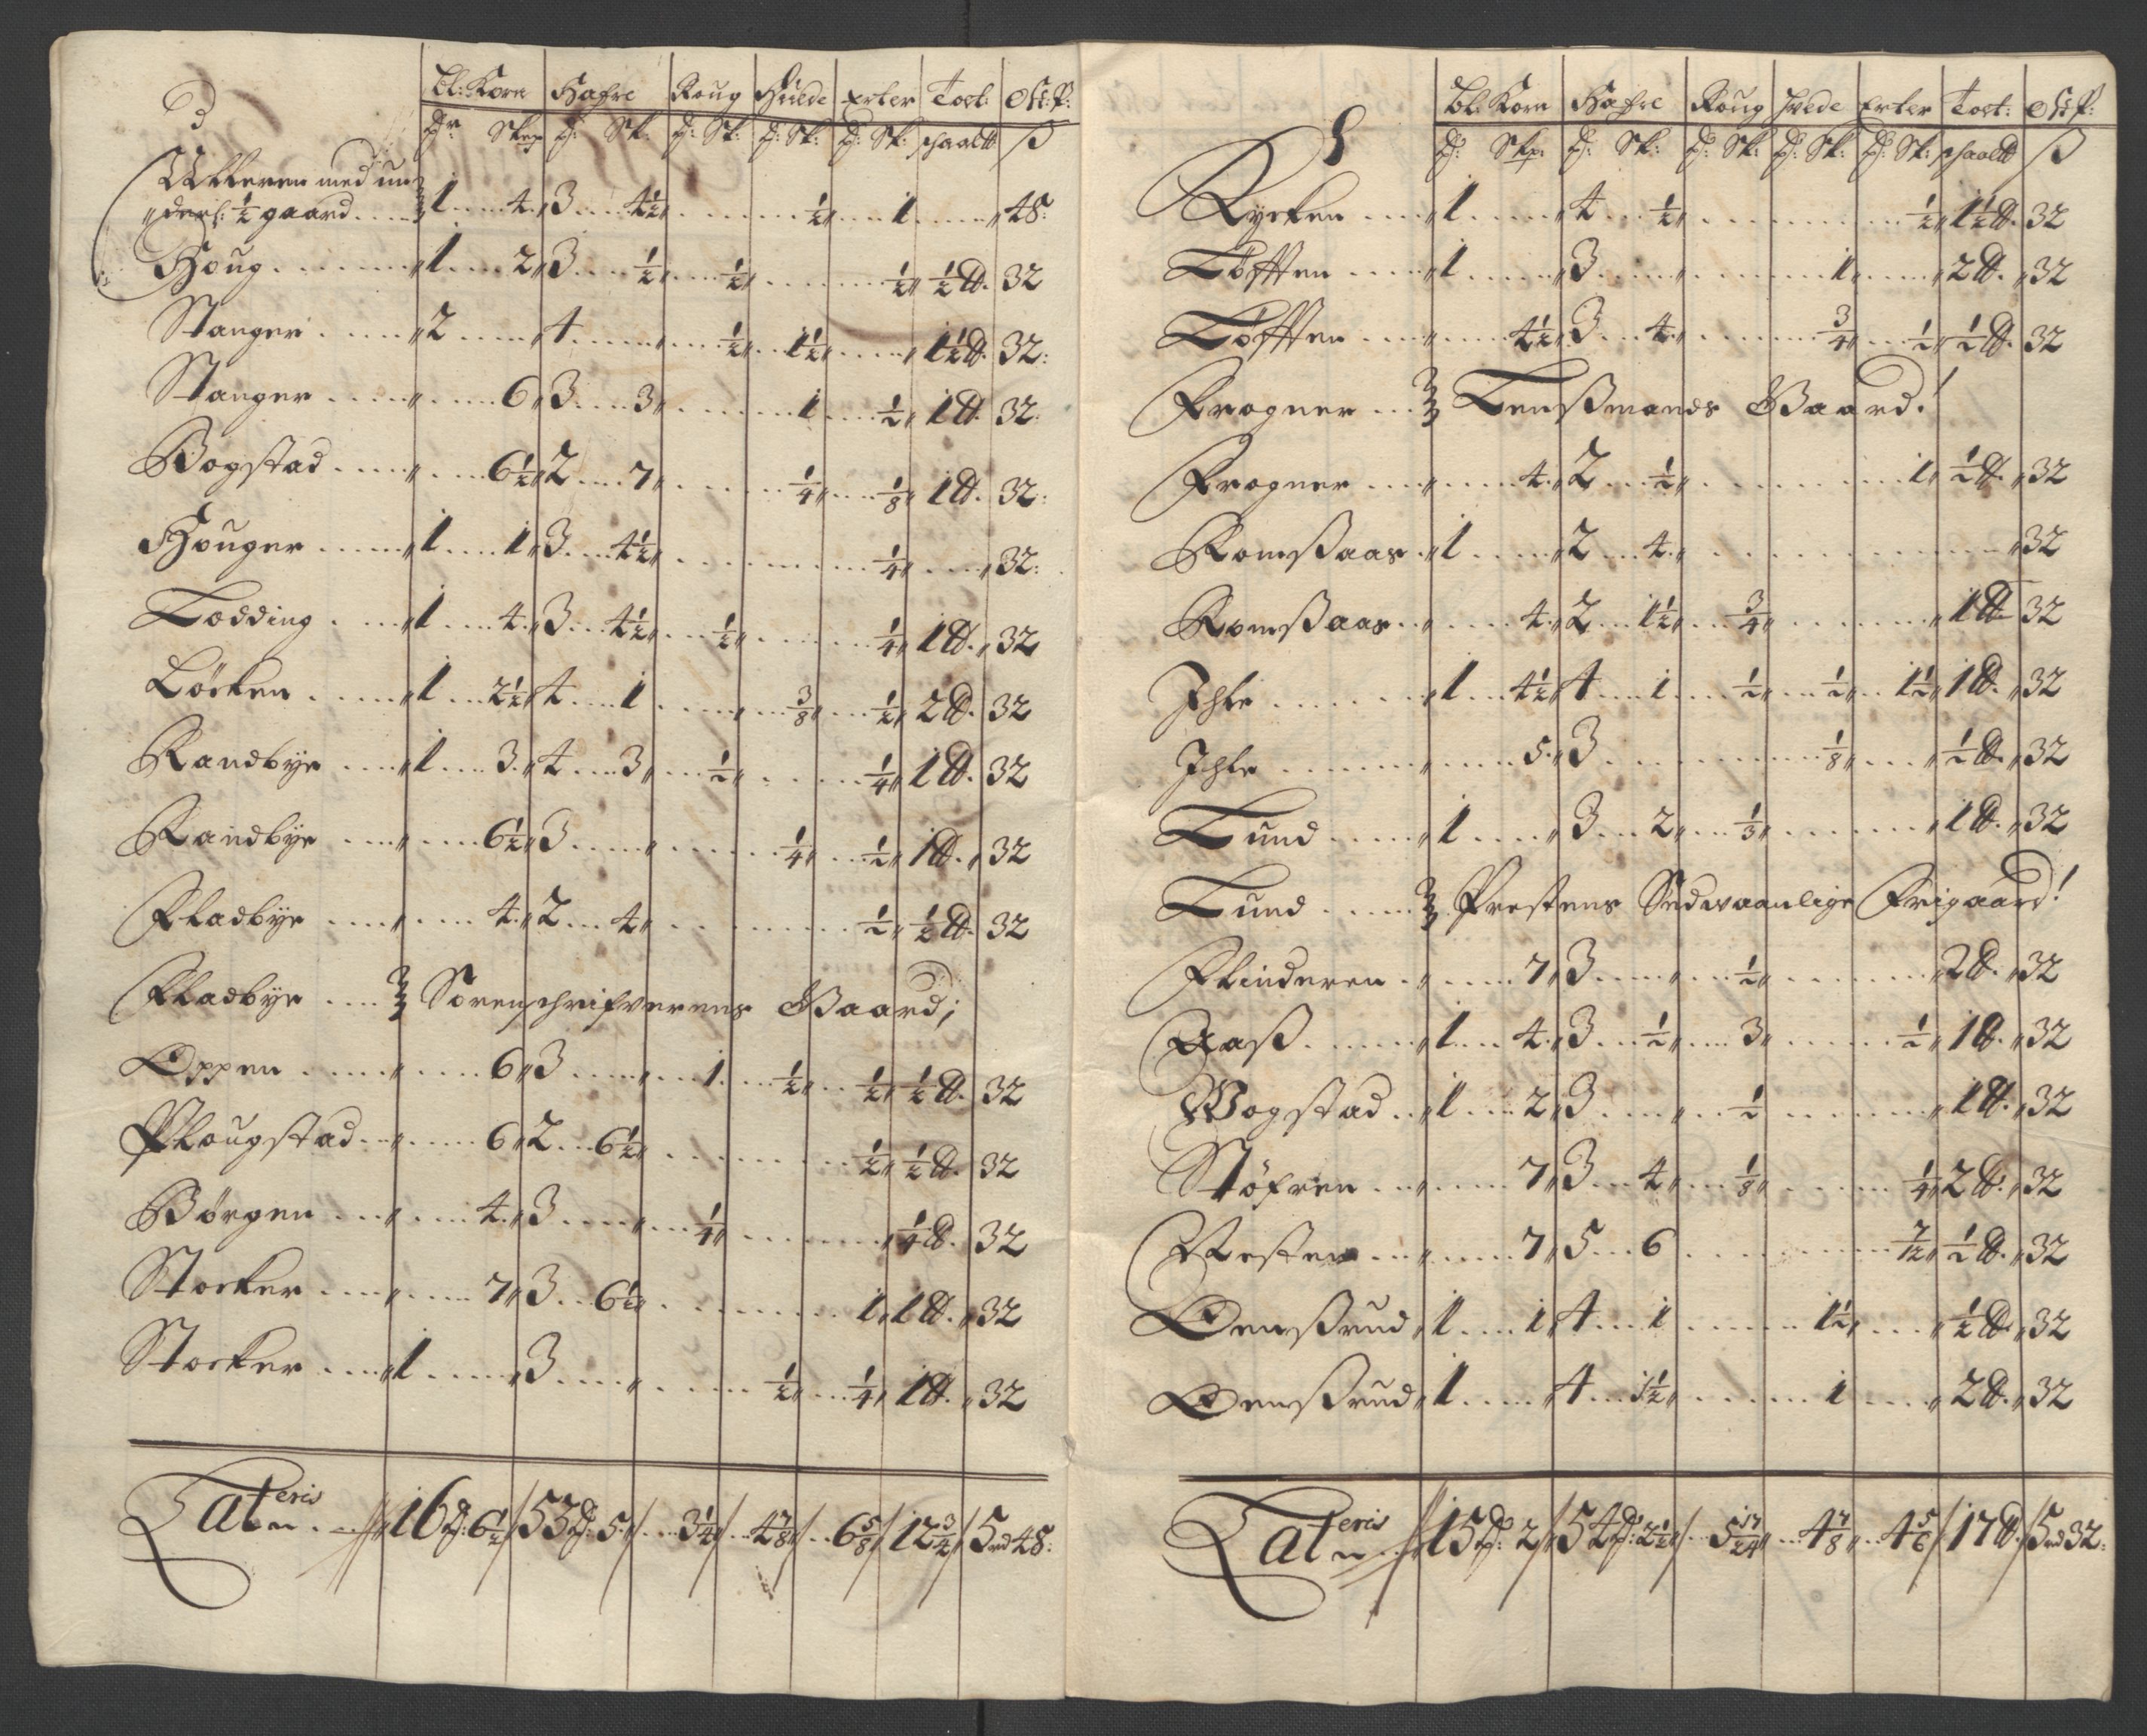 Bl: Korn Hafre Roug Huede Erter Tort: Ost. P:
Tr Skep T: Sk: T: Sk: T: Sk: T: Sk: schaal℔ ß
Ulleren med un
derl: ½ gaard .... 1 .... 4 " 3 .... 4½ " ........ ½ " .... 1 ..... " 48:
Houg ........ " 1 .... 2 " 3 .... ½ " .... ½ " ........ ½ " ½ ℔. 32
Stanger ...... " 2 ..... " 4 ...... " .... ½ " .. 1½ " ..... " 1½ ℔. 32:
Stanger ...... " ..... 6 " 3 .... 3 " ........ 1 .... ½ " 1 ℔. 32:
Bogstad ..... " .... 6½ " 2 .... 7 " ....... ¼ " .... ⅛ " 1 ℔. 32:
Houger ...... " 1 .... 1 " 3 .... 4½ " .......... ¼ " ..... " 32:
Lodding ..... " 1 .... 4 " 3 ... 4½ " .... ½ " ........ ¼ " 1 ℔. " 32
Löcken ...... " 1 ... 2½ " 4 .... 1 ...... " ... ⅜ " ... ½ " 2 ℔. 32
Randbye .... " 1 .... 3 " 4 .... 3 " .... ½ " ....... ¼ " 1 ℔. 32
Randbye .... " .... 6½ " 3 ...... " ....... ¼ " ... ½ " 1 ℔. " 32
Fladbye ..... " .... 4 " 2 .... 4 " .......... ½ " ½ ℔. 32
Fladbye .... Sorenschrifverens Gaard;
Oppen ...... " ..... 6 " 3 ...... " .... 1 .... ½ " ... ½ " ½ ℔. 32
Plougstad ... " ..... 6 " 2 ... 6½ " ......... ½ " ½ ℔. 32
Börgen .... " .... 4 " 3 ..... " ... ¼ " .......... " ¼ ℔. 32
Stocker .... " ..... 7 " 3 ... 6½ " .......... 1 " 1 ℔. " 32
Stocker .... " 1 ..... " 3 ..... " ....... ½ " ... ¼ " 1 ℔. " 32
Lateris ... 16 T: 6½ / 53 T: 5 / .. 3¼ / .. 4⅞ / .. 6⅝ / 12¾ / 5 rd 48:
Bl: Korn Hafre Roug Hvede Erter Tort: Ost P:
T: Skp: T: Sk: T: Sk: T: Sk: T: Sk: schaal℔ ß
Rycken .... " 1 ..... " 4 ... ½ " ............. ½ " 1½ ℔. 32
Töfften .... " 1 ..... " 3 ..... " ........ 1 " ..... " 2 ℔. " 32
Töfften .... " .... 4½ " 3 ... 4 " ........ ¾ " ... ½ " ½ ℔. 32
Frogner ... Lenßmands Gaard!
Frogner ... " .... 4 " 2 ... ½ " ............ 1 " ½ ℔. " 32
Romßaas .. " 1 ..... " 2 ... 4 " ................ " 32
Romßaas .. " ..... 4 " 2 ... 1½ " .. ¾ " ........ " 1 ℔ 32
Ihle ....... " 1 ... 4½ " 4 .... 1 .... ½ " ... ½ " .. 1½ " 1 ℔. " 32
Ihle ........ " .... 5 " 3 ............. ⅛ " ... " ½ ℔. " 32
Tund ..... " 1 ..... " 3 ... 2 " ... ⅓ " ........ " 1 ℔. " 32
Tund ..... Prestens Sedwaanlige Frigaard!
Flinderen .. " .... 7 " 3 ..... " ... ½ " ........ " 2 ℔. " 32
Aaß ....... " 1 .... 4 " 3 ... ½ " .... 3 " ....... ½ " 1 ℔. " 32
Wogstad ... " 1 .... 2 " 3 ..... " .. ½ ......... " 1 ℔. " 32
Stöfren ... " ..... 7 " 3 ... 4 " ... ⅛ " ........ ¼ " 2 ℔. " 32
Westen ... " ..... 7 " 5 ... 6 ............ 7/12 " ½ ℔. " 32
Oenßrud " 1 .... 1 " 4 ... 1 ........ 1½ " ... " ½ ℔. " 32
Oenßrud " 1 ..... " 4 ... 1½ " ....... 1 .... " 2 ℔. " 32
Lateris ... 15 T: 2 / 54 T: 2½ / .. 5 17/24 " .. 4⅞ " .. 4⅚ / 17 ℔. / 5 rd 32: